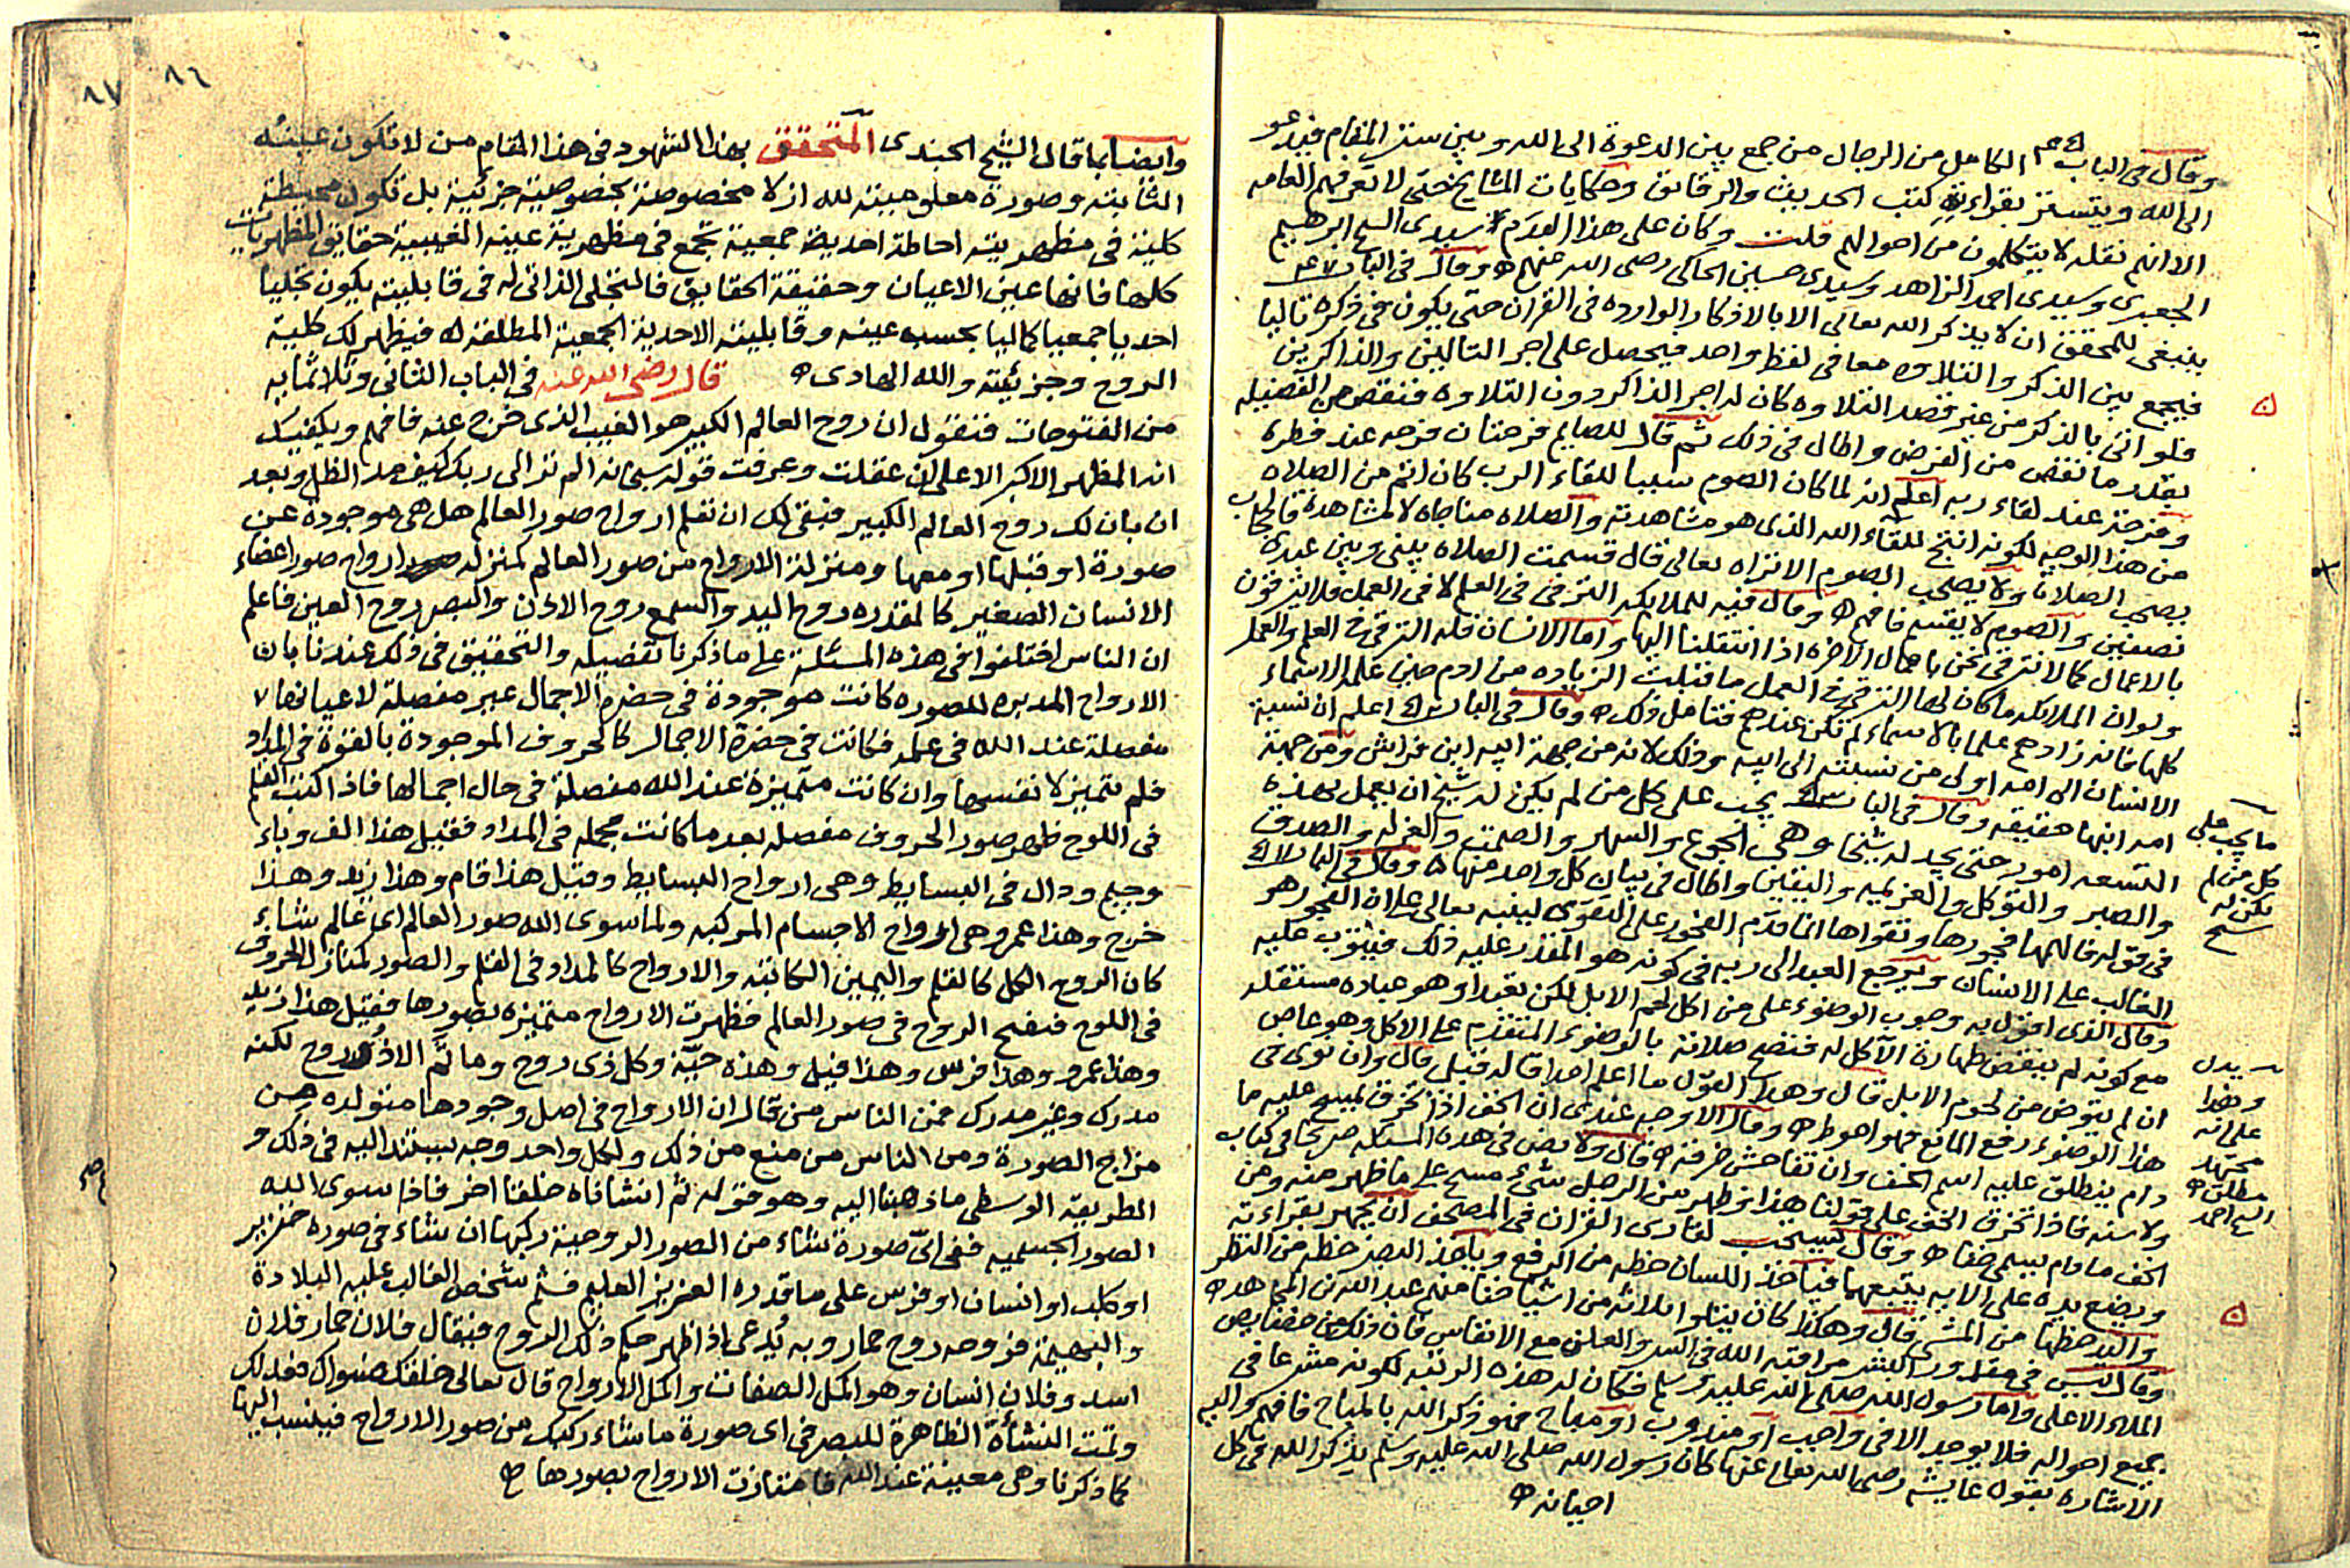 وقال في الباب الكامل من الرجال من جمع بين الدعوة الى الله وبين ستر المقام فيدعو
الى الله ويتستر بقراءة كتب الحديث والرقائق وحكايات المشايخ حتى لا تعرفه العامه
الا انه نقله لا يتكلمون من احوالهم قلت وكان على هذا القدم سيدى الشيخ ابرهيم
الجعبرى وسيدى احمد الزاهد وسيدى حسين الجاكى رضى الله عنهم وقال في الباب
ينبغى للمحقق ان لا يذكر الله تعالى الا بالاذكار الوارده في القران حتى يكون في ذكره تاليا
فيجمع بين الذكر والتلاوه معا في لفظ واحد فيحصل على اجر التالين والذاكرين
فلو اتى بالذكر من غير قصد التلاوه كان له اجر الذاكر دون التلاوه فنقص من الفضيله
بقدر ما نقص من القرض واطال في ذلك ثم قال للصايم فرحتان فرحه عند فطره
وفرحة عند لقاء ربه اعلم انه لما كان الصوم سببا للقاء الرب كان اتم من الصلاه
من هذا الوجه لكونه انتج لقاء الله الذى هو مشاهدته والصلاه مناجاه لا مشاهدة فالحجاب
يصحب الصلاة ولا يصحب الصوم الا تراه تعالى قال قسمت الصلاه بينى وبين عبدى
نصفين والصوم لا يقسم فافهم وقال فيه للملائكه الترقى في العلم لا في العمل فلا يترقون
بالاعمال كما لا نترقى نحن باعمال الاخره اذا انتقلنا اليها واما الانسان فله الترقى في العلم والعمل
ولو ان الملائكه ما كان لها الترقى في العلم ما قبلت الزياده من ادم حين علمها الاسماء
كلها فانه زادهم علما بالاسماء لم تكن عندهم فتامل ذلك وقال في الباب اعلم ان نسبة
الانسان الى امه اولى من نسبته الى ابيه وذلك لانه من جهة ابيه ابن فراش ومن جهة
امه ابنها حقيقه وقال في الباب يجب على كل من لم يكن له شيخ ان يعمل بهذه
التسعه امور حتى يجد له شيخا وهى الجوع والسهر والصمت والعزله والصدق
والصبر والتوكل والعزيمه واليقين واطال في بيان كل واحد منها وقال في الباب
في قوله فالهمها فجورها وتقواها انما قدم الفجور على التقوى لينبه تعالى على ان الفجور هو
الغالب على الانسان ويرجع العبد الى ربه في كونه هو المقدر عليه ذلك فيتوب عليه
وقال الذى اقول به وجوب الوضوء على من اكل لحم الابل لكن تعبدا وهو عباده مستقله
مع كونه لم ينقض طهارة الآكل له فتصح صلاته بالوضوء المتقدم على الاكل وهو عاص
ان لم يتوض من لحوم الابل قال وهذا القول ما اعلم احدا قاله قبلى قال وان نوى في
هذا الوضوء رفع المانع فهو احوط وقال الاوجه عندى ان الخف اذا تخرق يمسح عليه ما
دام ينطلق عليه اسم الخف وان تفاحش خرقه قال ولا نص في هذه المسئله صريحا في كتاب
ولا سنه فاذا تخرق الخف على قولنا هذا وظهر من الرجل شىء مسح على ما ظهر منه ومن
الخف ما دام يسمى خفا وقال يستحب لقارى القران في المصحف ان يجهر بقراءته
ويضع يده على الايه يتبعها فياخذ اللسان حظه من الرفع وياخذ البصر حظه من النظر
واليد حظها من المس قال وهكذا كان يتلوا ثلاثه من اشياخنا منهم عبد الله بن المجاهد
وقال ليس في مقدور البشر مراقبة الله في السر والعلن مع الانفاس فان ذلك من خصايص
الملاء الاعلى واما رسول الله صلى الله عليه وسلم فكان له هذه الرتبه لكونه مشرعا في
جميع احواله فلا يوجد الا في واجب او مندوب او مباح فهو ذكر الله بالمباح فافهم واليه
الاشاره بقول عايشه رضى الله تعالى عنها كان رسول الله صلى الله عليه وسلم يذكر الله في كل
احيانه
ما يجب على
كل من لم
يكن له
شيخ
يدل
وهذا
على انه
مجتهد
مطلق
الشيخ احمد
٨٦
٨٧
وايضا بما قال الشيخ الجندى المتحقق بهذا الشهود في هذا المقام من لا تكون عينه
الثابته وصورة معلوميته لله ازلا مخصوصة بخصوصية جزئية بل تكون محيطة
كلية في مظهريته احاطة احدية جمعية تجمع في مظهرية عينه الغيبية حقايق المظهريات
كلها فانها عين الاعيان وحقيقة الحقايق فالتجلى الذاتى له في قابليته يكون تجليا
احديا جمعيا كماليا بحسب عينه وقابليته الاحدية الجمعية المطلقة فيظهر لك كلية
الروح وجزئيته والله الهادى قال رضى الله عنه في الباب الثانى وثلاثمايه
من الفتوحات فنقول ان روح العالم الكبير هو الغيب الذى خرج عنه فافهم ويكفيك
انه المظهر الاكبر الاعلى ان عقلت وعرفت قوله سبحانه الم تر الى ربك كيف مد الظل وبعد
ان بان لك روح العالم الكبير فبقى لك ان تعلم ارواح صور العالم هل هى موجودة عن
صورة او قبلها او معها ومنزلة الارواح من صور العالم كمنزله ارواح صور اعضاء
الانسان الصغير كالقدره روح اليد والسمع روح الاذن والبصر روح العين فاعلم
ان الناس اختلفوا في هذه المسئلة على ما ذكرنا تفصيله والتحقيق في ذلك عندنا بان
الارواح المدبره للصوره كانت موجودة في حضرة الاجمال غير مفصلة لاعيانها
مفصلة عند الله في علمه فكانت في حضرة الاجمال كالحروف الموجودة بالقوة في المداد
فلم تتميز لانفسها وان كانت متميزة عند الله مفصلة في حال اجمالها فاذا كتب القلم
في اللوح ظهر صور الحروف مفصلة بعد ما كانت مجمله في المداد فقيل هذا الف وباء
وجيم ودال في البسايط وهى ارواح البسايط وقيل هذا قام وهذا زيد وهذا
خرج وهذا عمرو وهى ارواح الاجسام المركبه ولما سوى الله صور العالم اى عالم شاء
كان الروح الكل كالقلم واليمين الكاتبة والارواح كالمداد في القلم والصور كمنازل الحروف
في اللوح فنفخ الروح في صور العالم فظهرت الارواح متميزه بصورها فقيل هذا زيد
وهذا عمرو وهذا فرس وهذا فيل وهذه حيّة وكل ذى روح وما ثَم الا ذو روح لكنه
مدرك وغير مدرك فمن الناس من قال ان الارواح في اصل وجودها متولده من
مزاج الصورة ومن الناس من منع من ذلك ولكل واحد وجه يستند اليه في ذلك و
الطريقة الوسطى ما ذهبنا اليه وهو قوله ثم انشاناه خلقا اخر فاذا سوى الله
الصور الجسميه ففى اىّ صورة شاء من الصور الروحية ركبها ان شاء في صورة خنزير
او كلب او انسان او فرس على ما قدره العزيز العليم فثم شخص الغالب عليه البلادة
والبهيمة فروحه روح حمار وبه يُدعى اذا ظهر حكم ذلك الروح فيقال فلان حمار فلان
اسد وفلان انسان وهو اكمل الصفات واكمل الارواح قال تعالى خلقك فسواك فعدلك
وتمت النشأة الظاهرة للبصر في اى صورة ما شاء ركبك من صور الارواح فينسب اليها
كما ذكرنا وهى معينة عند الله فامتازت الارواح بصورها